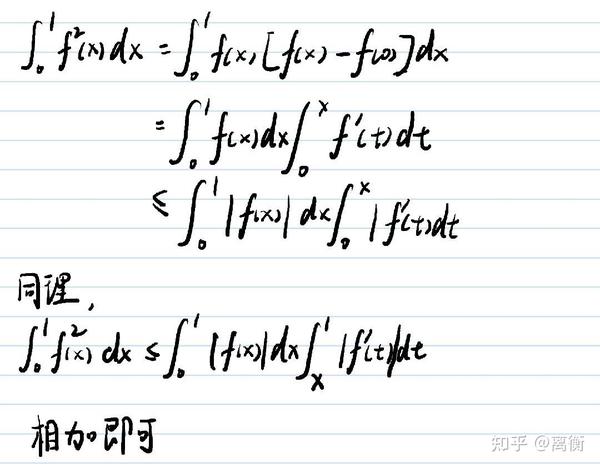 ∫₀¹ f²(x) dx = ∫₀¹ f(x) [f(x) - f(0)] dx
= ∫₀¹ f(x) dx ∫₀ˣ f'(t) dt
≤ ∫₀¹ |f(x)| dx ∫₀ˣ |f'(t) dt
同理,
∫₀¹ f²(x) dx ≤ ∫₀¹ |f(x)| dx ∫ₓ¹ |f'(t)| dt
相加即可
知乎 @离衡